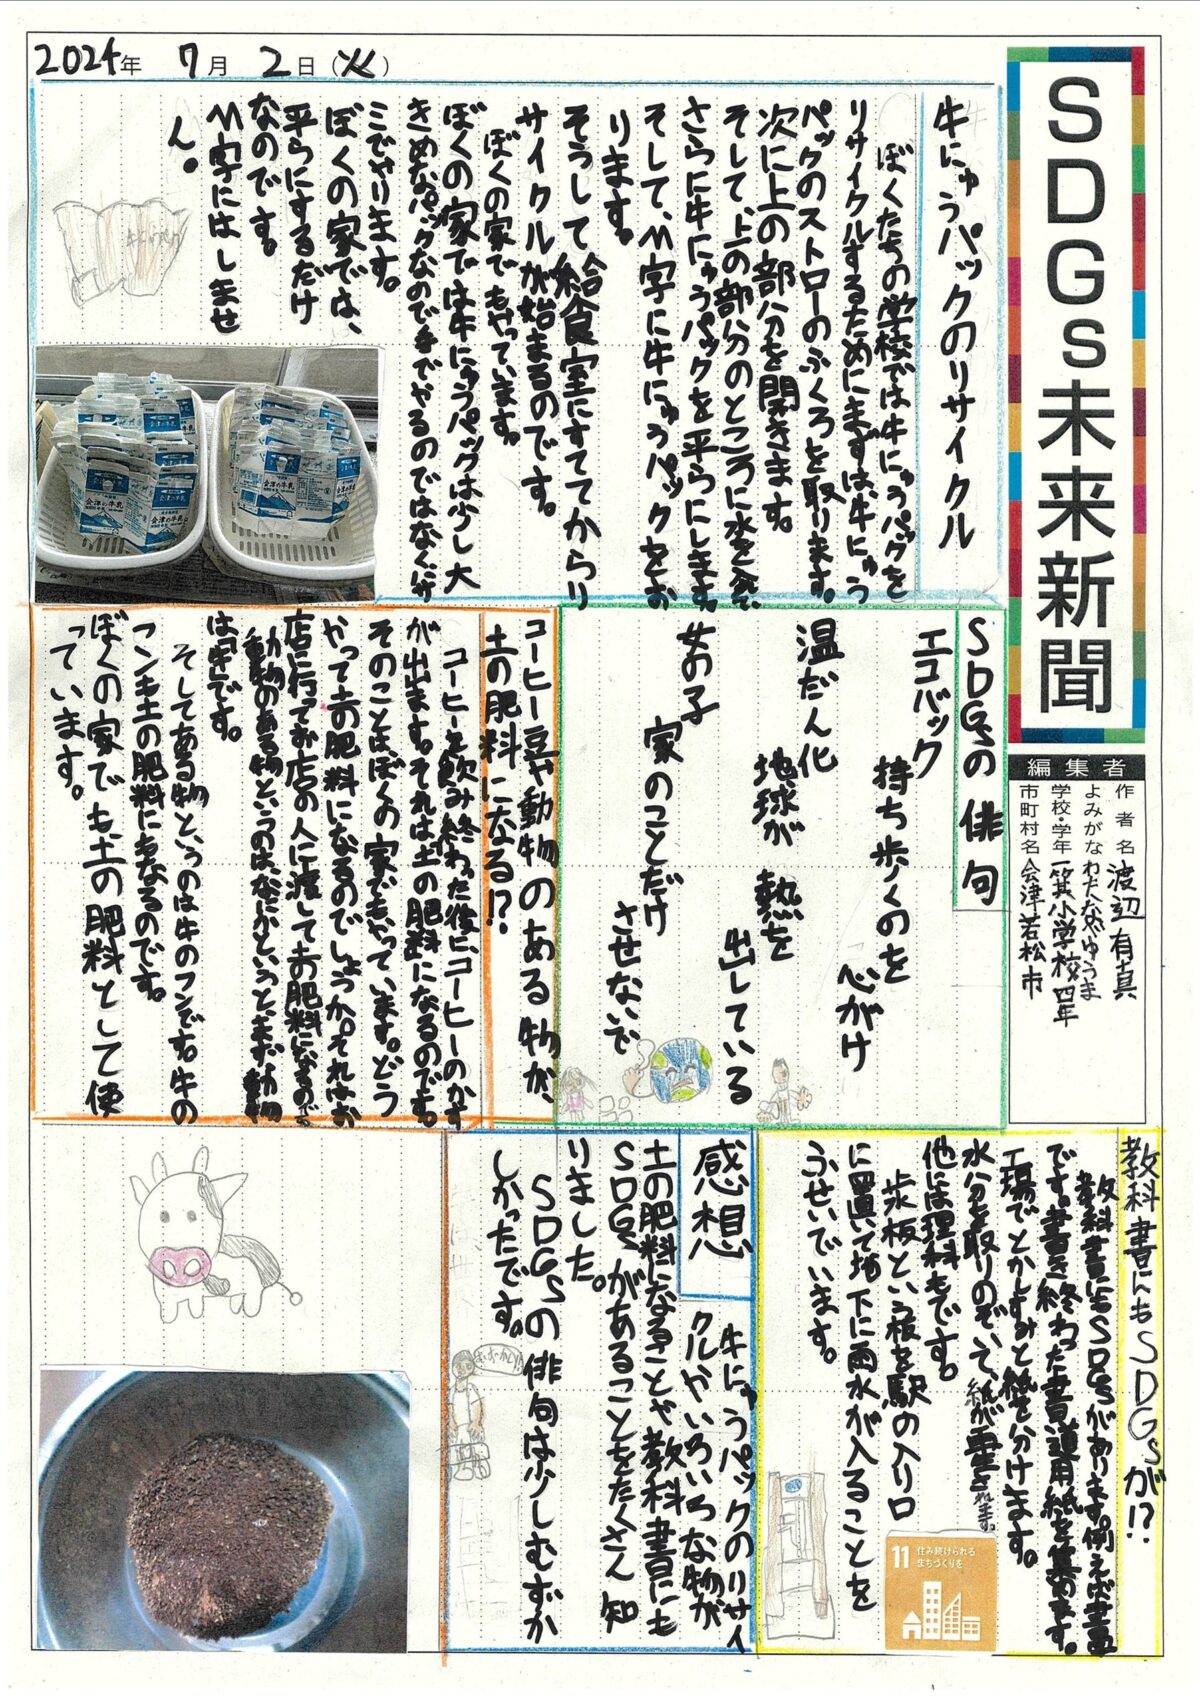 2024年 7月 2日(火)
SDGs未来新聞
編集者
作者名 渡辺有真
よみがな わたなべゆうま
学校・学年 一箕小学校四年
市町村名 会津若松市
牛にゅうパックのリサイクル
ぼくたちの学校では牛にゅうパックを
リサイクルするためにまずは、牛にゅう
パックのストローのふくろを取ります。
次に上の部分を開きます。
そして、上の部分のところに水を入れ
さらに牛にゅうパックを平らにします。
そして、M字に牛にゅうパックをお
ります。
そうして給食室にすててからリ
サイクルが始まるのです。
ぼくの家でもやっています。
ぼくの家では牛にゅうパックは少し大
きめなパックなので手でやるのではなくハサ
ミでやります。
ぼくの家では、
平らにするだけ
なのです。
M字にはしませ
ん。
牛にゅうパック
会津の牛乳
会津の牛乳
会津の牛乳
SDGsの俳句
エコバック
持ち歩くのを
心がけ
温だん化
地球が熱を
出している
女の子
家のことだけ
させないで
コーヒー豆や動物のある物が、
土の肥料になる!?
コーヒーを飲み終わった後に、コーヒーのかす
が出ます。それは土の肥料になるのです。
そのことは、ぼくの家でもやっています。どう
やって土の肥料になるのでしょうか。それはお
店に行ってお店の人に渡して土の肥料になるのです。
動物のある物というのは、なにかというと、まず動物
は牛です。
そしてある物というのは牛のフンです。牛の
フンも土の肥料にもなるのです。
ぼくの家でも、土の肥料として使
っています。
教科書にもSDGsが!?
教科書にもSDGsがあります。例えば書写
です。書き終わった書道用紙を集めます。
工場でとかしすみと紙を分けます。
水分を取りのぞいて、紙が再生されます。
他には理科もです。
歩板という板を駅の入り口
に置いて地下に雨水が入ることを
ふせいでいます。
11 住み続けられる
まちづくりを
感想
牛にゅうパックのリサイ
クルやいろいろな物が
土の肥料になることや教科書にも
SDGsがあることをたくさん知
りました。
SDGsの俳句は少しむずか
しかったです。
むずかしい!!